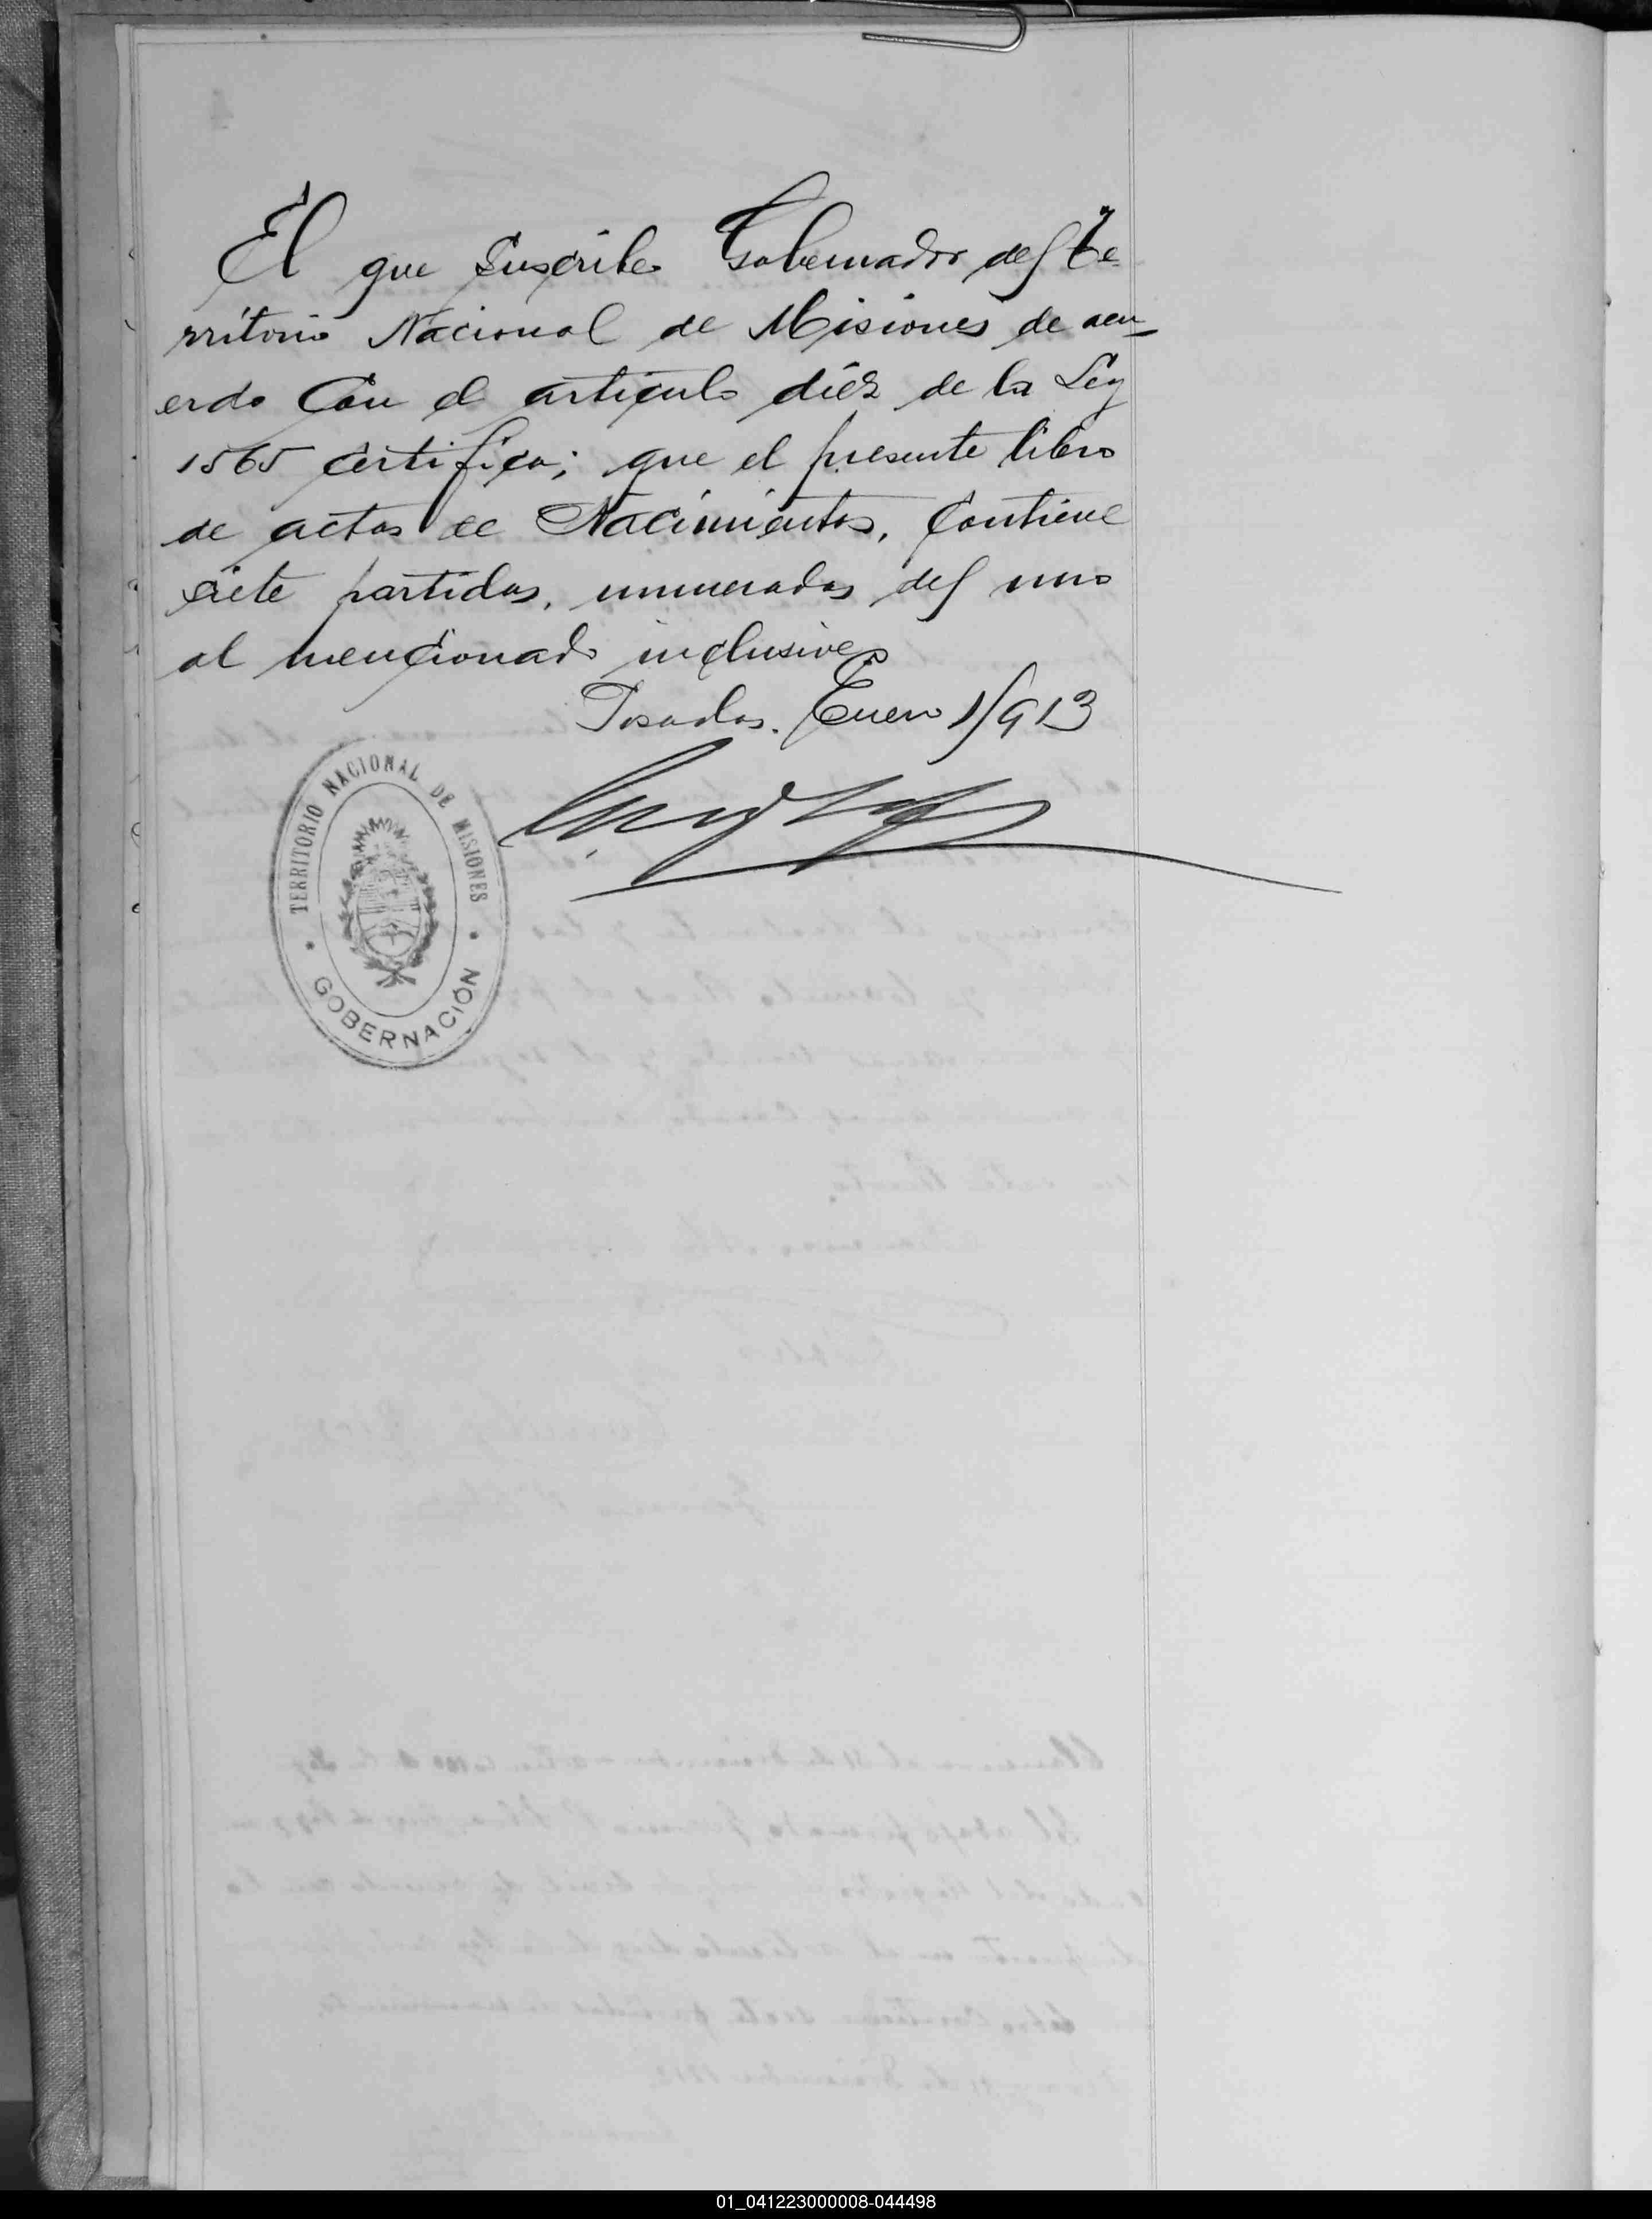 El que suscribe Gobernador del Te-
rritorio Nacional de Misiones de acu-
erdo con el articulo diéz de la Ley
1565 certifica; que el presente libro
de actas de Nacimientos, contiene
siete partidas, numeradas del uno
al mencionado inclusive
Posadas. Enero 1/913
TERRITORIO NACIONAL DE MISIONES
GOBERNACIÓN
01_041223000008-044498